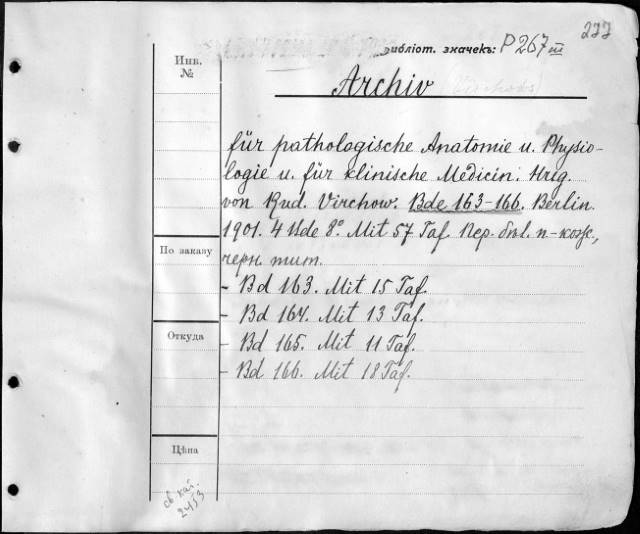 222
Библіот. значекъ: P 267 III
Инв.
№
Archiv (Virchows)
für pathologische Anatomie u. Physio-
logie u. für klinische Medicin. Hrsg.
von Rud. Virchow. Bde 163-166. Berlin.
1901. 4 Bde 8°. Mit 57 Taf. Пер. бѣл. п-кож.,
черн. тит.
По заказу
- Bd 163. Mit 15 Taf.
- Bd 164. Mit 13 Taf.
Откуда
- Bd 165. Mit 11 Taf.
- Bd 166. Mit 18 Taf.
Цѣна
кат.
2453